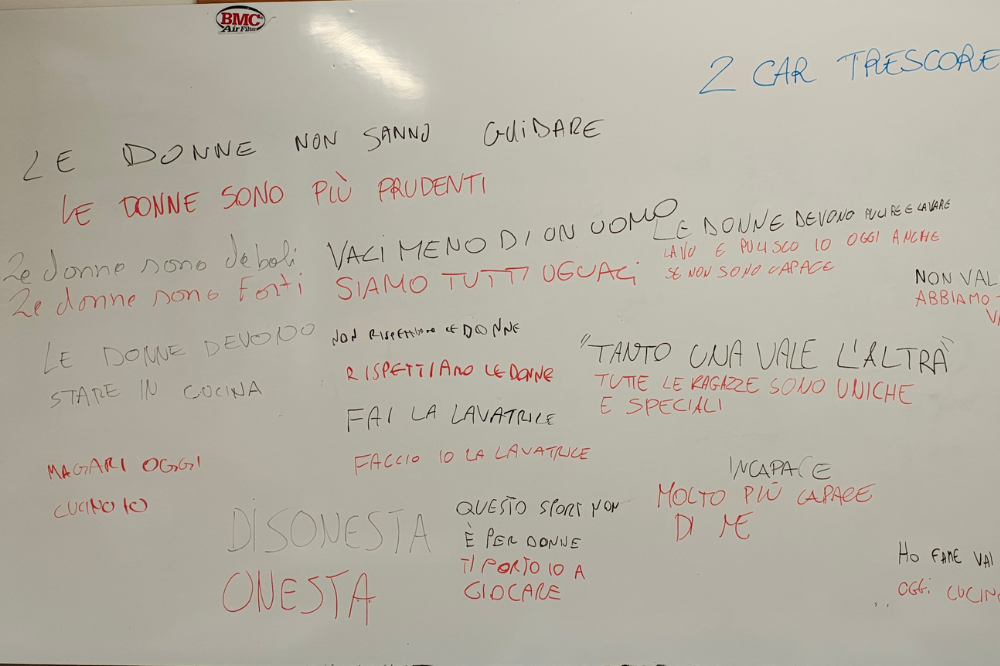 BMC
Air Filter
2 CAR TRESCORE
LE DONNE NON SANNO GUIDARE
LE DONNE SONO PIÙ PRUDENTI
Le donne sono deboli
Le donne sono forti
VALI MENO DI UN UOMO
SIAMO TUTTI UGUALI
LE DONNE DEVONO PULIRE E LAVARE
LAVO E PULISCO IO OGGI ANCHE
SE NON SONO CAPACE
NON VAL
ABBIAMO
LE DONNE DEVONO
STARE IN CUCINA
MAGARI OGGI
CUCINO IO
NON RISPETTIAMO LE DONNE
RISPETTIAMO LE DONNE
FAI LA LAVATRICE
FACCIO IO LA LAVATRICE
"TANTO UNA VALE L'ALTRA"
TUTTE LE RAGAZZE SONO UNICHE
E SPECIALI
INCAPACE
MOLTO PIÙ CAPACE
DI ME
DISONESTA
ONESTA
QUESTO SPORT NON
È PER DONNE
TI PORTO IO A
GIOCARE
HO FAME VAI
OGGI CUCINO